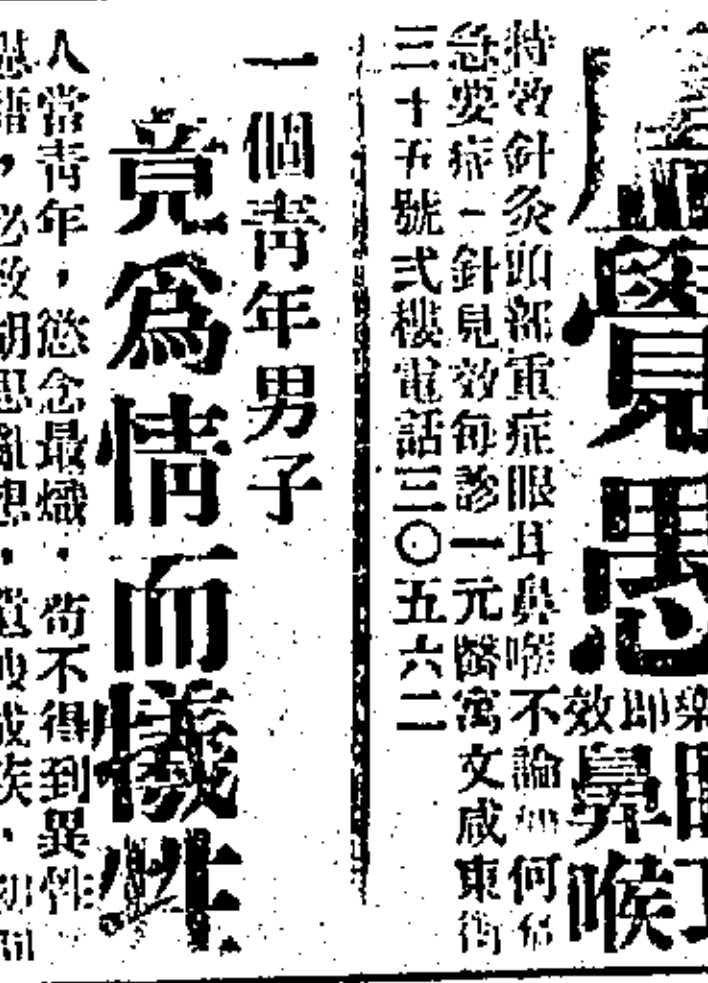 盧覺愚
藥即效
鼻喉
特效針灸頭部重症眼耳鼻喉不論如何危
急要症一針見效每診一元醫寓文咸東街
三十五號弍樓電話三〇五六二
一個青年男子
竟爲情而犧牲
人當青年，慾念最熾．苟不得到異性
慰藉，必致胡思亂想．成疾．初則